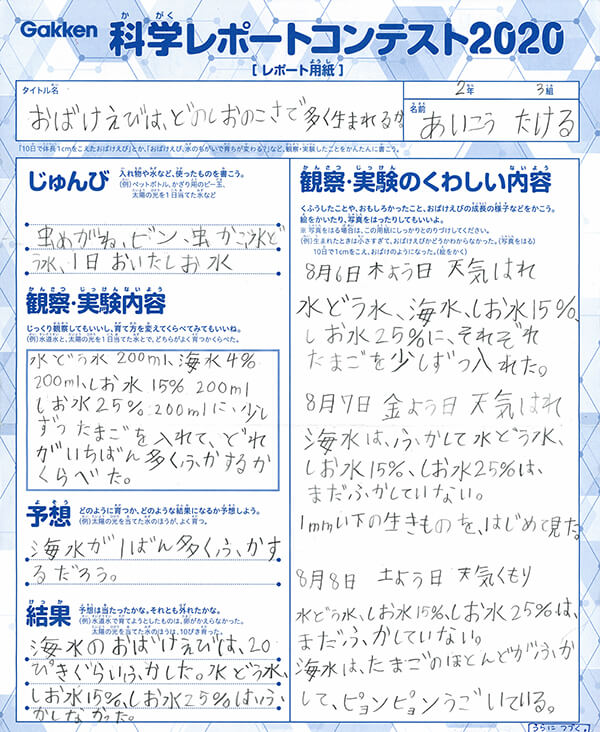 Gakken 科学レポートコンテスト2020
[ レポート用紙 ]
タイトル名
おばけえびは、どのしおのこさで多く生まれるか
2年 3組
名前 あいこう たける
「10日で体長1cmをこえたおばけえび」とか、「おばけえび、水のちがいで育ちが変わる?」など、観察・実験したことをかんたんに書こう。
じゅんび
入れ物や水など、使ったものを書こう。
(例)ペットボトル、かざり用のビー玉、
太陽の光を1日当てた水など
虫めがね、ビン、虫かご、水ど
う水、1日おいたしお水
観察・実験内容
じっくり観察してもいいし、育て方を変えてくらべてみてもいいね。
(例)水道水と、太陽の光を1日当てた水とで、どちらがよく育つかくらべた。
水どう水200ml、海水4%
200ml、しお水15% 200ml
しお水25% 200mlに、少し
ずつたまごを入れて、どれ
がいちばん多くふかするか
くらべた。
予想
どのように育つか、どのような結果になるか予想しよう。
(例)太陽の光を当てた水のほうが、よく育つ。
海水が1ばん多くふかす
るだろう。
結果
予想は当たったかな。それとも外れたかな。
(例)水道水で育てようとしたものは、卵がかえらなかった。
太陽の光を当てた水のほうは、10ぴき育った。
海水のおばけえびは、20
ぴきぐらいふかした。水どう水、
しお水15%、しお水25%はふ
かしなかった。
観察・実験のくわしい内容
くふうしたことや、おもしろかったこと、おばけえびの成長の様子などをかこう。
絵をかいたり、写真をはったりしてもいいよ。
※写真をはる場合は、この用紙にしっかりとのりづけしてください。
(例)生まれたときは小さすぎて、おばけえびかどうかわからなかった。(写真をはる)
10日で1cmをこえ、おばけのようになった。(絵をかく)
8月6日木よう日 天気はれ
水どう水、海水、しお水15%、
しお水25%に、それぞれ
たまごを少しずつ入れた。
8月7日 金よう日 天気はれ
海水は、ふかして水どう水、
しお水15%、しお水25%は
まだふかしていない。
1mmい下の生きものを、はじめて見た。
8月8日 土よう日 天気くもり
水どう水、しお水15%、しお水25%は、
まだふかしていない。
海水は、たまごのほとんどがふか
して、ピョンピョンうごいている。
うらにつづく